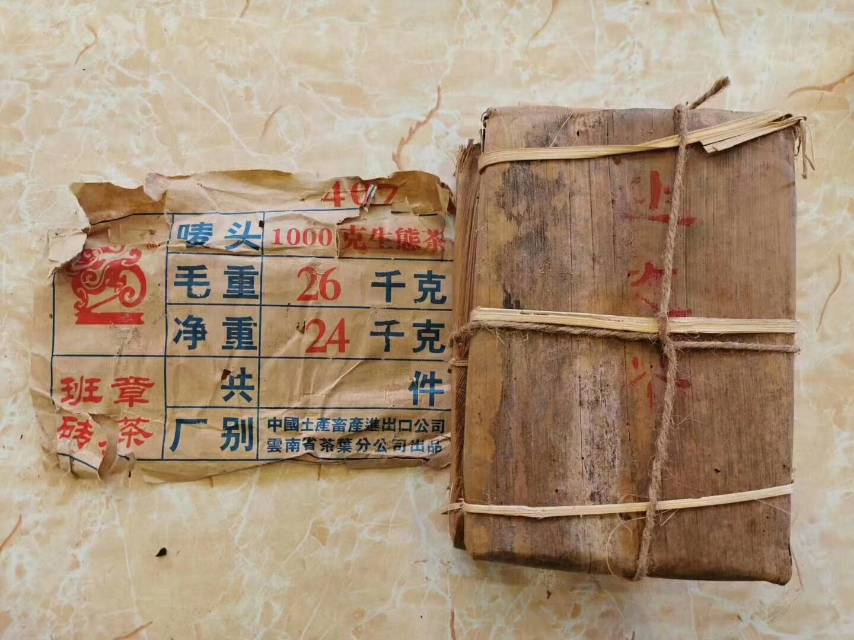 407
唛头 1000克生態茶
毛重 26 千克
净重 24 千克
共 件
厂别 中國土產畜產進出口公司
雲南省茶葉分公司出品
班章
砖茶
上